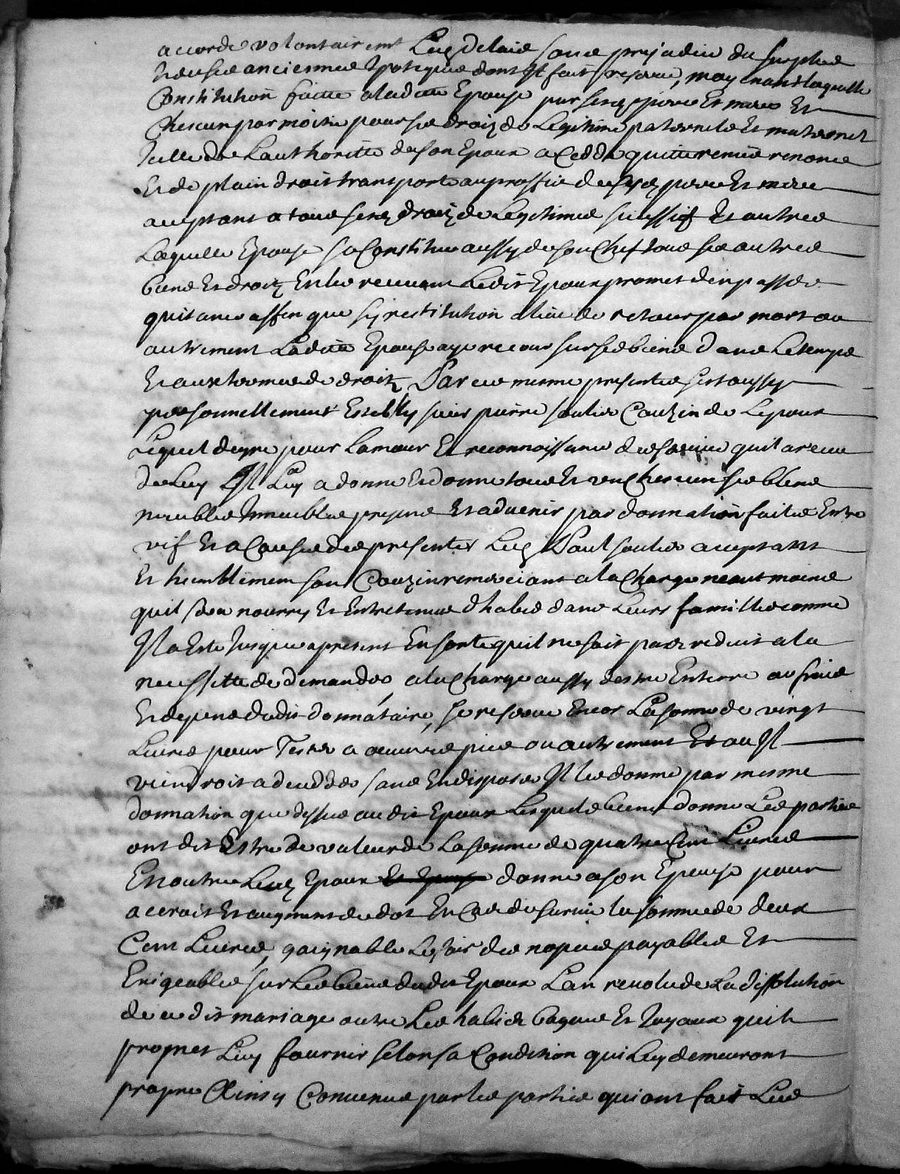 accorde volontairemt led delaie sans prejudice du surplus
ny de ses anciennes ypoteques dont Il fait reserve, moyenant laquelle
Constitution faitte a ladite Epouse par ses pere Et mere Et
Chescun par moitie pour ses droiz de Legitime paternels et maternels
Icelle de Lauthoritte de son Epoux a Cedde quitte remis renonce
Et de plain droit transporte au proffit de sesd pere Et mere
aceptant a tous ses droiz de Legitime sucessif Et autres
Laquelle Epouse se Constitue aussy de son Chef tous ses autres
biens Et droiz En les recevant Ledit Epoux promet d'en passer
quitance affin que sy restitution a lieu de retour par mort ou
autrement Ladite Epouse aye recours sur ses biens dans Le temps
Et aux termes de droit, Par ces mesme presentes sest aussy
personnellement Estably sieur pierre soulie Couzin de Lepoux
Lequel de gre pour Lamour Et reconnoissance des services quil a receu
de Luy Il Luy a donne Et donne tous Et un Chescun ses biens
meubles Inmeubles presens Et advenir par donnation faite Entre
vif Et a Cause des presentes Led Paul soulie aceptant
Et humblement son Couzin remerciant a la Charge neantmoins
quil sera nourry Et Entretenue d'habis dans Leurs famille comme
Il a Este Jusques a present En sorte quil ne soit pas reduit a la
necessitte de demander a la Charge aussy destre Enterre au frais
Et depens dudit donnátaire, se reserve Encor La somme de vingt
Livres pour Tester a oeuvres pies ou autrement Et ou Il
viendroit a decedder sans En disposer Il les donne par mesme
donnation que dessus audit Epoux Lesquels biens donnes Les parties
ont dit Estre de valeur de La somme de quatre Cent Livres
En outre Led Epoux Et Epouse donne a son Epouse pour
acroit Et augment de dot En Cas de survie la somme de deux
Cent Livres, gaignable Le soir des nopces payables Et
Exigeables sur Les biens dudit Epoux Lan revolu de La dissolution
de ce dit mariage outre Les habits bagues Et Joyaux quil
promet Luy fournir selon sa Condition qui Luy demeuront
propre Ainsy Convenue par les parties qui ont fait Les